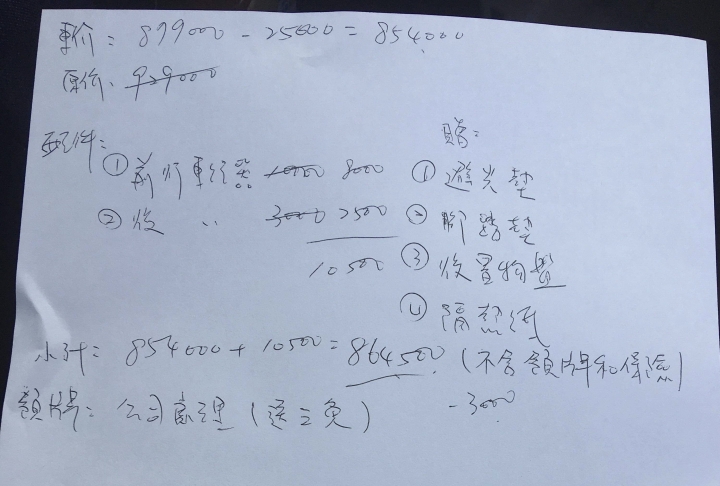 車价: 879000 - 25000 = 854000
原价: 929000
配件:
① 前行車紀錄器 10000 8000
② 後 〃 3000 2500
10500
贈:
① 避光墊
② 腳踏墊
③ 後置物墊
④ 隔熱紙
小計: 854000 + 10500 = 864500 (不含領牌和保險)
-3000
領牌: 公司處理 (選三免)